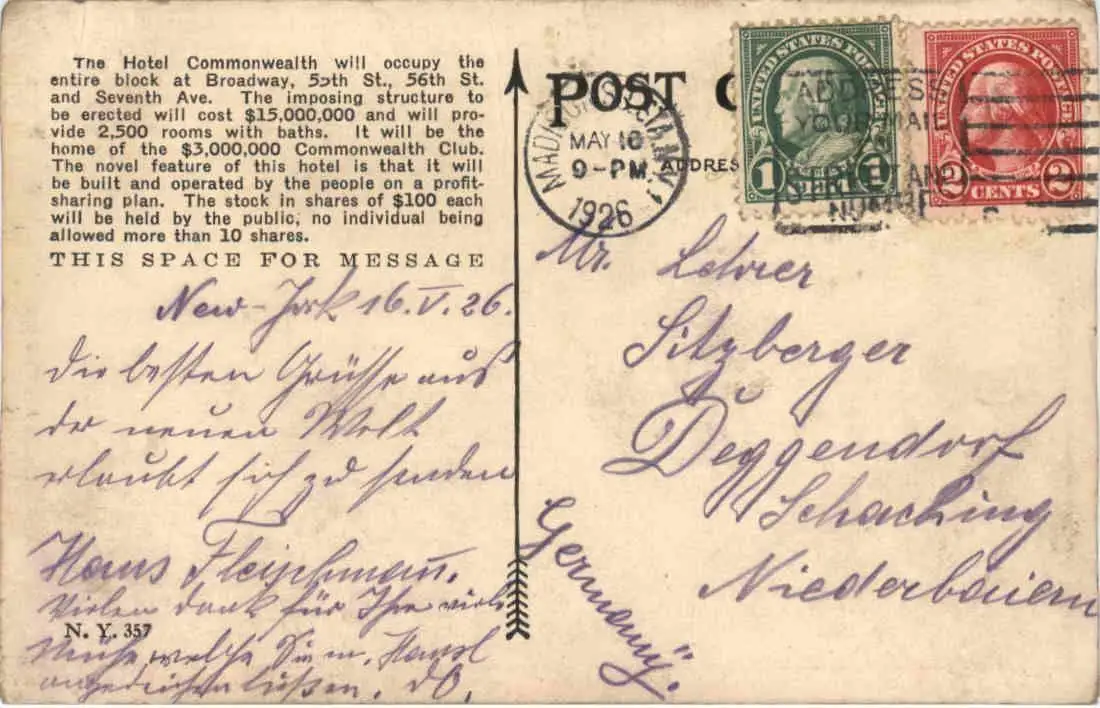 The Hotel Commonwealth will occupy the
entire block at Broadway, 55th St., 56th St.
and Seventh Ave. The imposing structure to
be erected will cost $15,000,000 and will pro-
vide 2,500 rooms with baths. It will be the
home of the $3,000,000 Commonwealth Club.
The novel feature of this hotel is that it will
be built and operated by the people on a profit-
sharing plan. The stock in shares of $100 each
will be held by the public, no individual being
allowed more than 10 shares.
THIS SPACE FOR MESSAGE
New-York 16.V.26.
die besten Grüsse aus
der neuen Welt
erlaubt sich zu senden
Hans Fleischmann.
Vielen Dank für Ihre viele
Mühe, welche Sie m. Hansl
angedeihen ließen. dO.
N. Y. 357
POST C
ADDRES
MADISON SQ. STA. N.Y. 1
MAY 16
9-PM
1926
UNITED STATES POSTAGE
1 1
UNITED STATES POSTAGE
2 CENTS 2
ADDRESS
YOUR MAIL
STREET AND
NUMBE
Mr. Lehrer
Sitzberger
Deggendorf
Schaching
Niederbaiern
Germany."